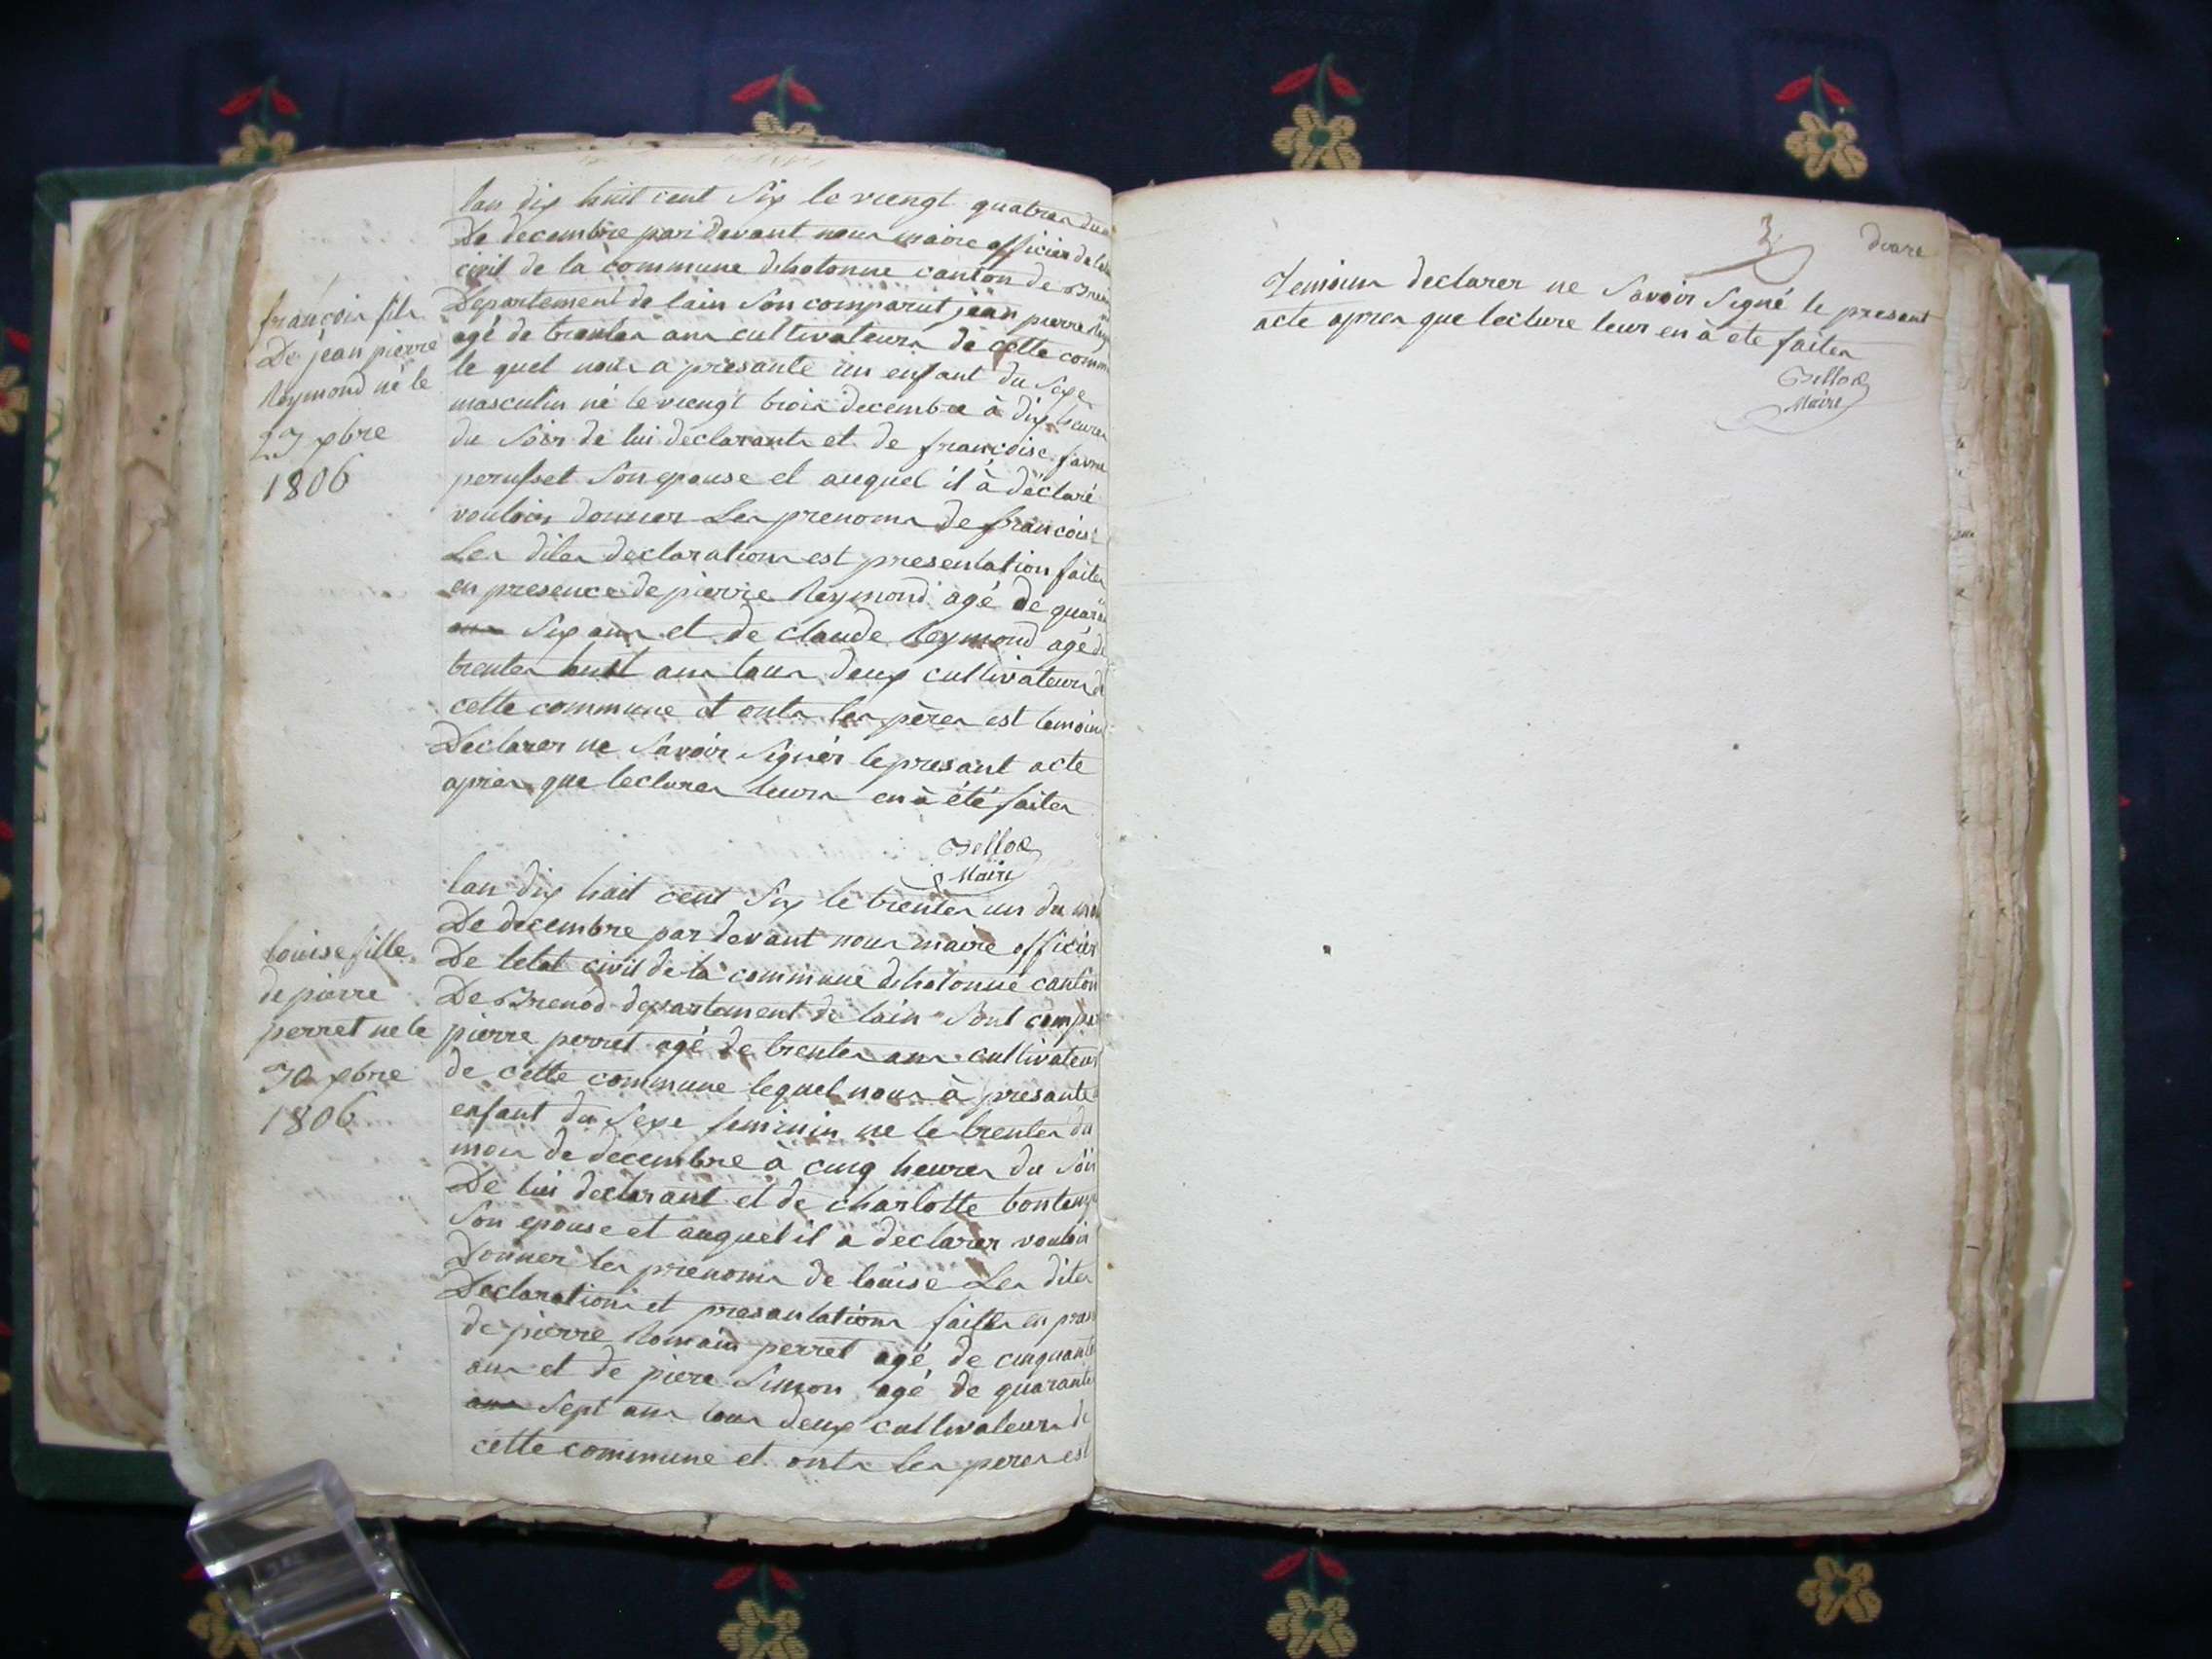 lan dix huit cent Six le viengt quatres du
De decembre par devant nous maire officier de letat
civil de la commune dhotonne canton de
Departement de lain Son comparut jean pierre
agé de trentes ans cultivateurs de cette comm
le quel nous a presanté un enfant du Sexe
masculin né le viengt trois decembre à dix heures
du Soir de lui declarants et de francoise favre
perusset Son epouse et auquel il à déclaré
vouloirs donner Les prenoms de francois
Les dites declarations est presentation faites
en presence de pierre Reymond agé de quaran
ans Six ans et de claude Reymond agé de
trentes huit ans tous deux cultivateurs de
cette commune et onts les pères est temoins
Declarer ne Savoir Signér le presant acte
apres que lectures leurs en à été faites
Maire
françois fils
De jean pierre
Reymond né le
23 xbre
1806
lan dix huit cent Six le trentes un du mois
De decembre par devant nous maire officier
De letat civil de la commune dhotonne canton
De Brenod departement de lain Sont compar
pierre perret agé de trentes ans cultivateur
de cette commune lequel nous à presanté
enfant du Sexe feminin ne le trentes du
mois de decembre à cinq heures du Soir
De lui declarant et de charlotte bontemp
Son epouse et auquel il a declarer vouloir
Donner les prenoms de louise Les dites
Declarations et presantations faites en pres
de pierre Romain perret agé de cinquante
ans et de piere Simon agé de quarante
ans Sept ans tous deux cultivateurs de
cette commune et onts les peres est
louise fille
de pierre
perret ne le
30 xbre
1806
3
Temoins declarer ne Savoir Signé le presant
acte apres que lecture leur en à eté faites
Maire